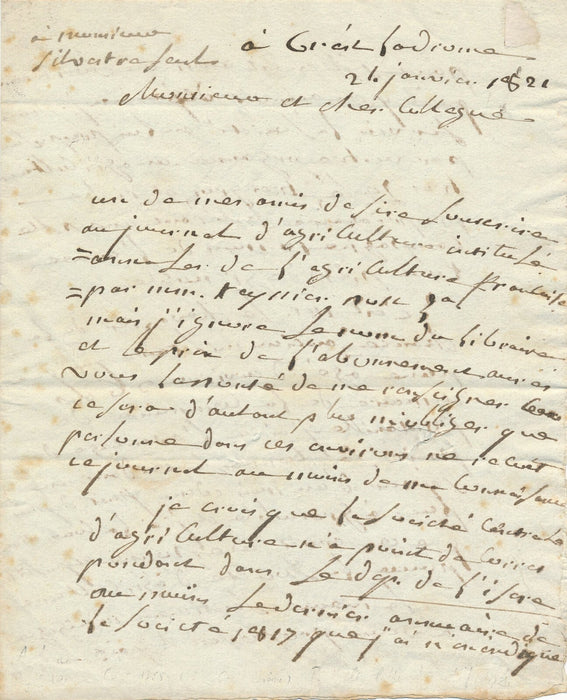 à monsieur
Silvestre
à Crést
24 janvier 1821
Monsieur et cher Collegue
un de mes amis desire souscrire
au journal d'agriculture intitulé
=annales de l'agriculture française
=par mm.
mais j'ignore le nom du libraire
et le prix de l'abonnement auriés
vous la bonté de me
ce sera d'autant plus m'obliger que
personne dans ces environs ne reçoit
ce journal au moins de ma
je crois que la société Centrale
d'agriculture n'a point de corres
pondant dans le dep. de l'isere
au moins le dernier annuaire de
la société 1817 que j'ai n'en indique